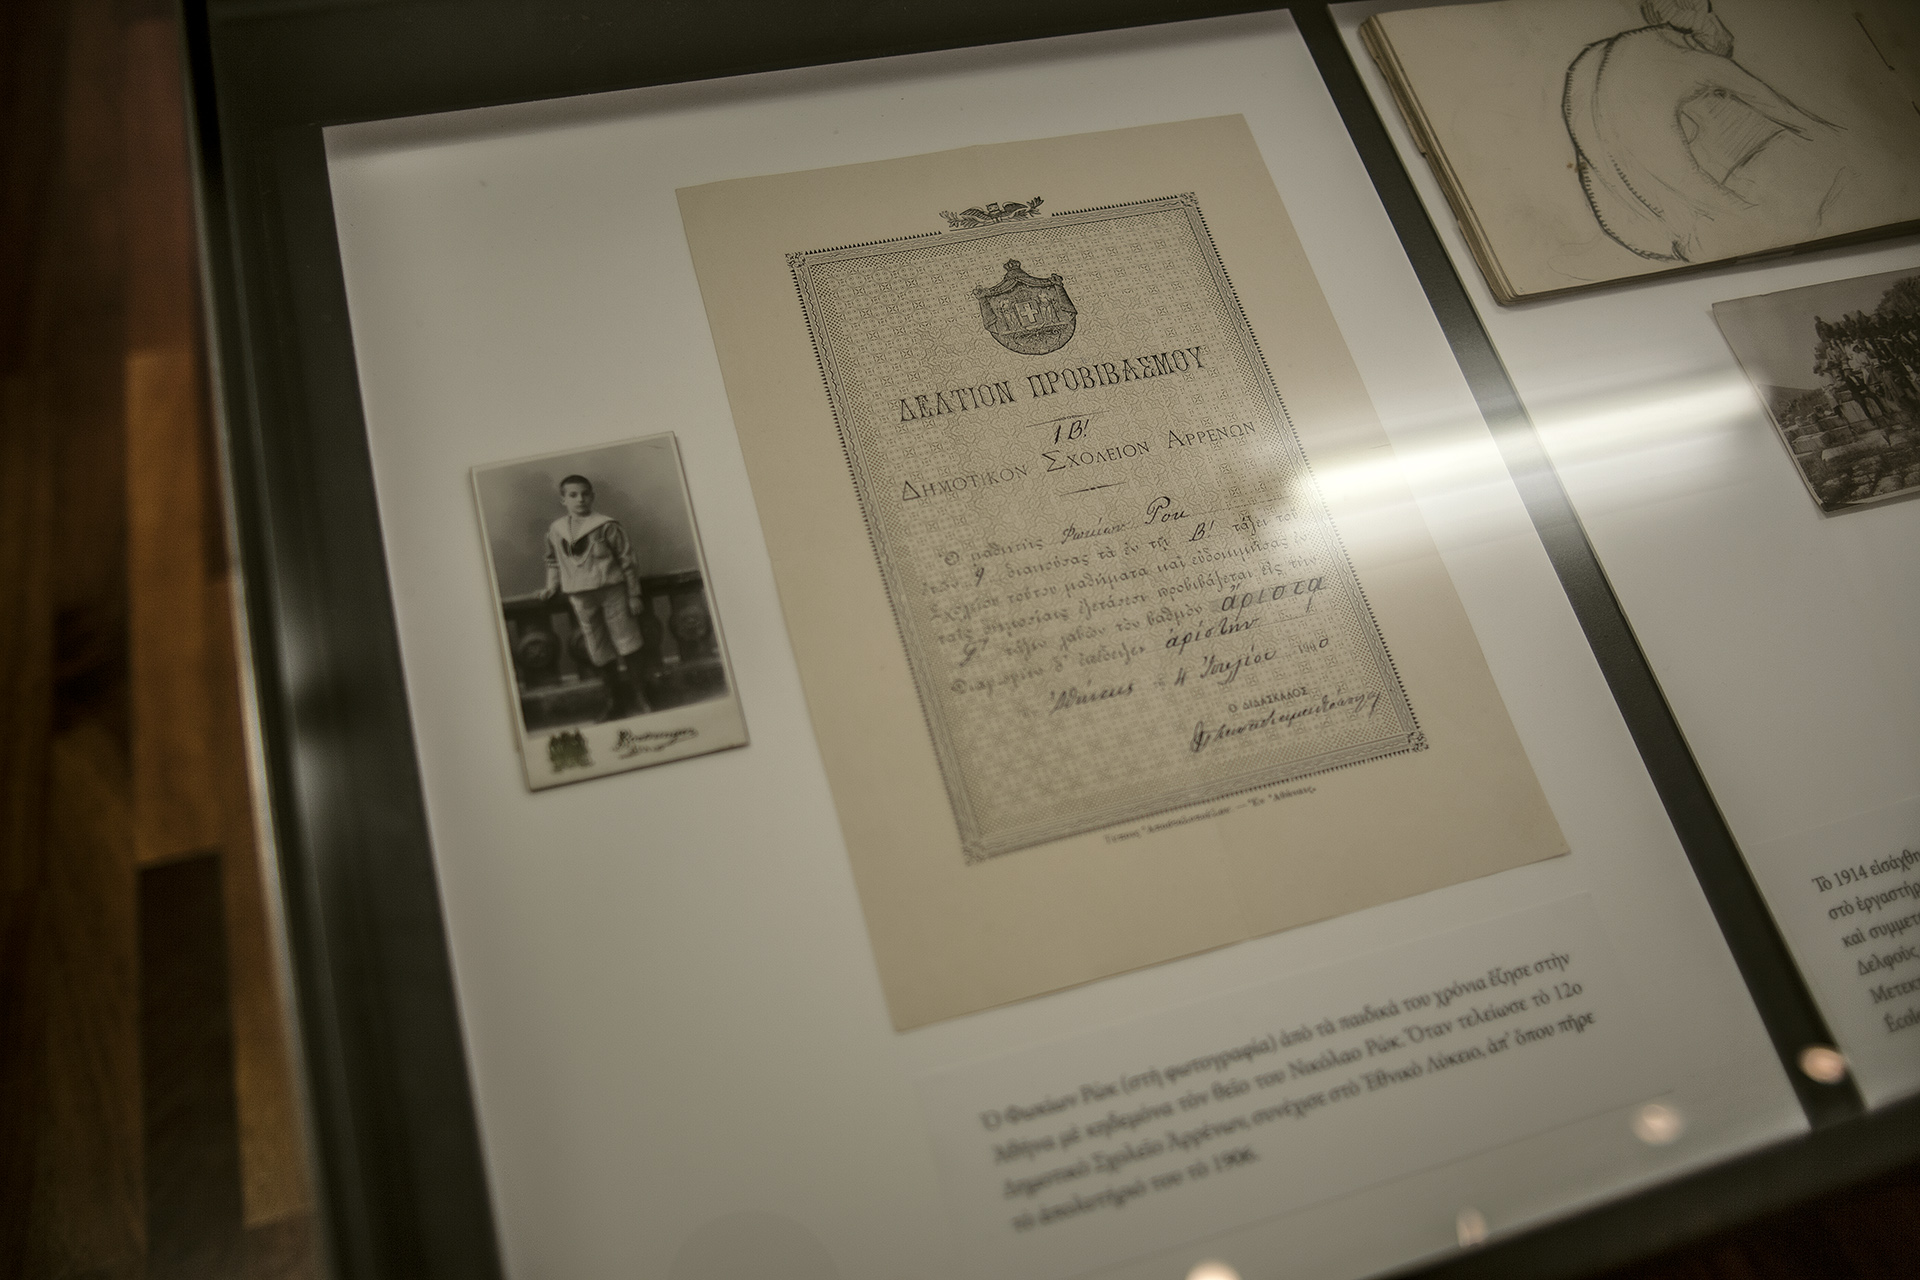 ΔΕΛΤΙΟΝ ΠΡΟΒΙΒΑΣΜΟΥ
ΙΒ!
ΔΗΜΟΤΙΚΟΝ ΣΧΟΛΕΙΟΝ ΑΡΡΕΝΩΝ
Ὁ μαθητὴς Φωκίων Ρωκ
ἐτῶν 9 διακούσας τὰ ἐν τῇ Β! τάξει τοῦ
Σχολείου τούτου μαθήματα καὶ εὐδοκιμήσας ἐν
ταῖς ἐξετάσεσι προβιβάζεται εἰς τὴν
τάξιν λαβὼν τὸν βαθμὸν ἄριστα
Διαγωγὴν δ' ἐπέδειξεν ἀρίστην
4 Ἰουλίου 1900
Ο ΔΙΔΑΣΚΑΛΟΣ
Ἐν Ἀθήναις.
Ὁ Φωκίων Ρὼκ (στὴ φωτογραφία) ἀπὸ τὰ παιδικά του χρόνια ἔζησε στὴν
Ἀθήνα μὲ κηδεμόνα τὸν θεῖο του Νικόλαο Ρώκ. Ὅταν τελείωσε τὸ 12ο
Δημοτικὸ Σχολεῖο Ἀρρένων, συνέχισε στὸ Ἐθνικὸ Λύκειο, ἀπ' ὅπου πῆρε
τὸ ἀπολυτήριό του τὸ 1906.
Τὸ 1914 εἰσάχθη
στὸ ἐργαστήρ
καὶ συμμετ
Δελφούς,
Μετεκ
École